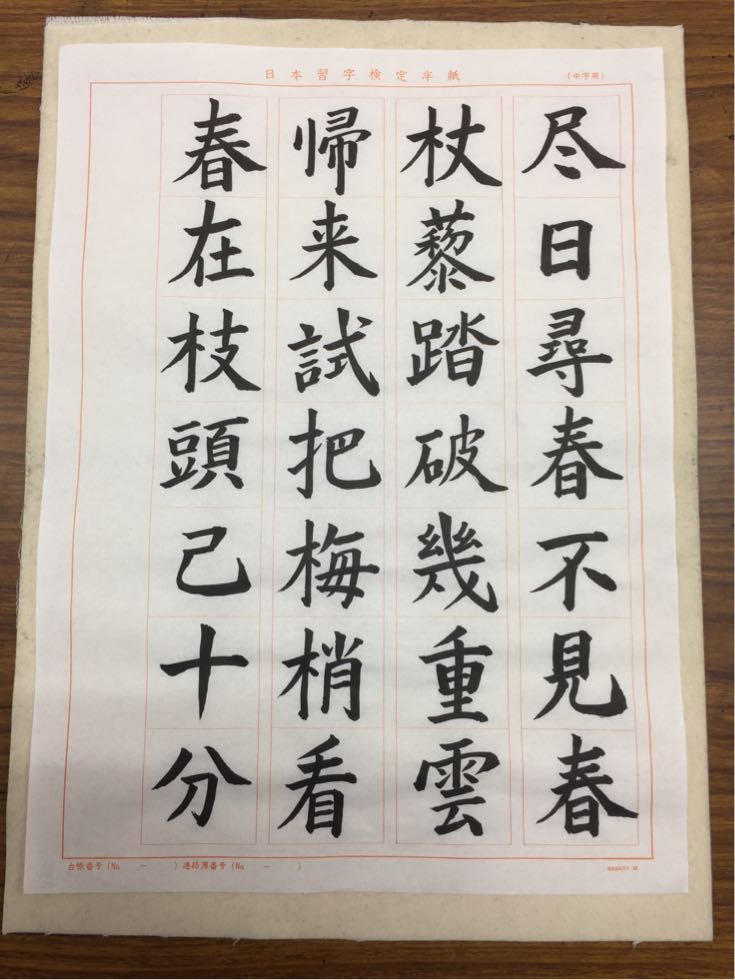 日本習字検定半紙
(中字用)
尽日尋春不見春
杖藜踏破幾重雲
帰来試把梅梢看
春在枝頭己十分
台帳番号(No. ー )連絡簿番号(No. ー )